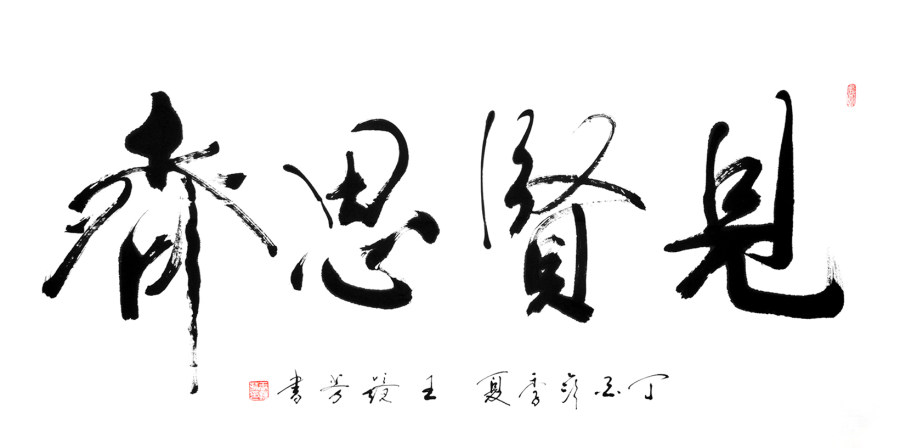 見賢思齊
丁酉年季夏 王芳書